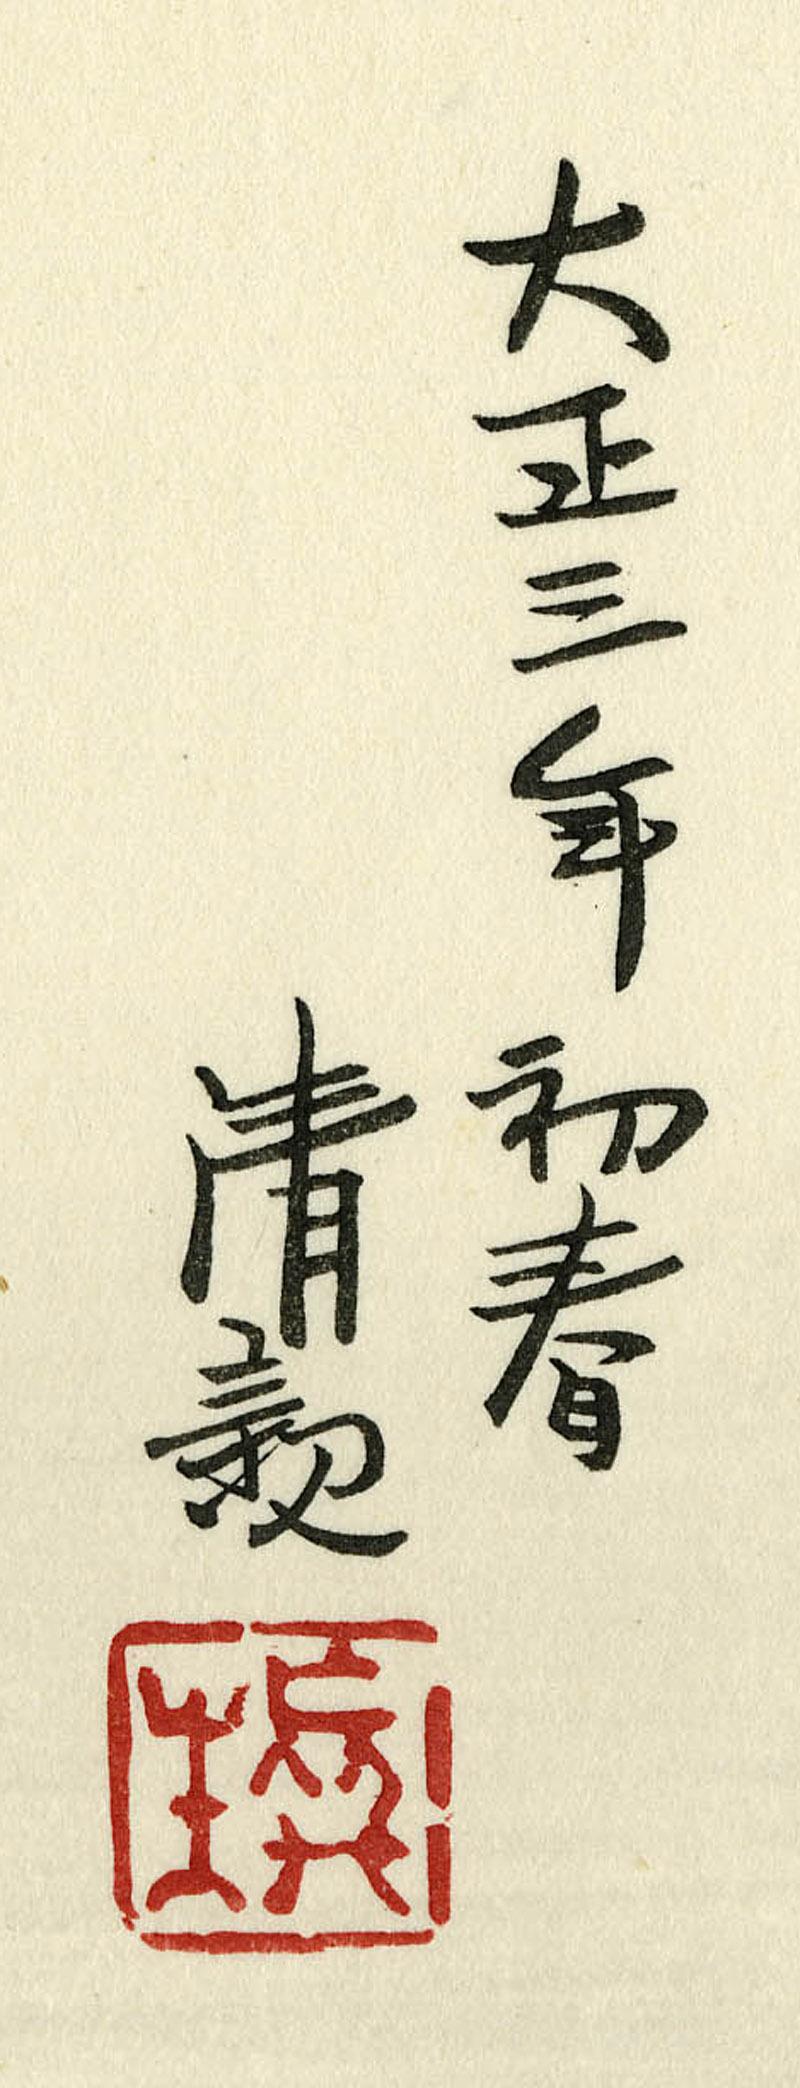 大正三年初春
清親